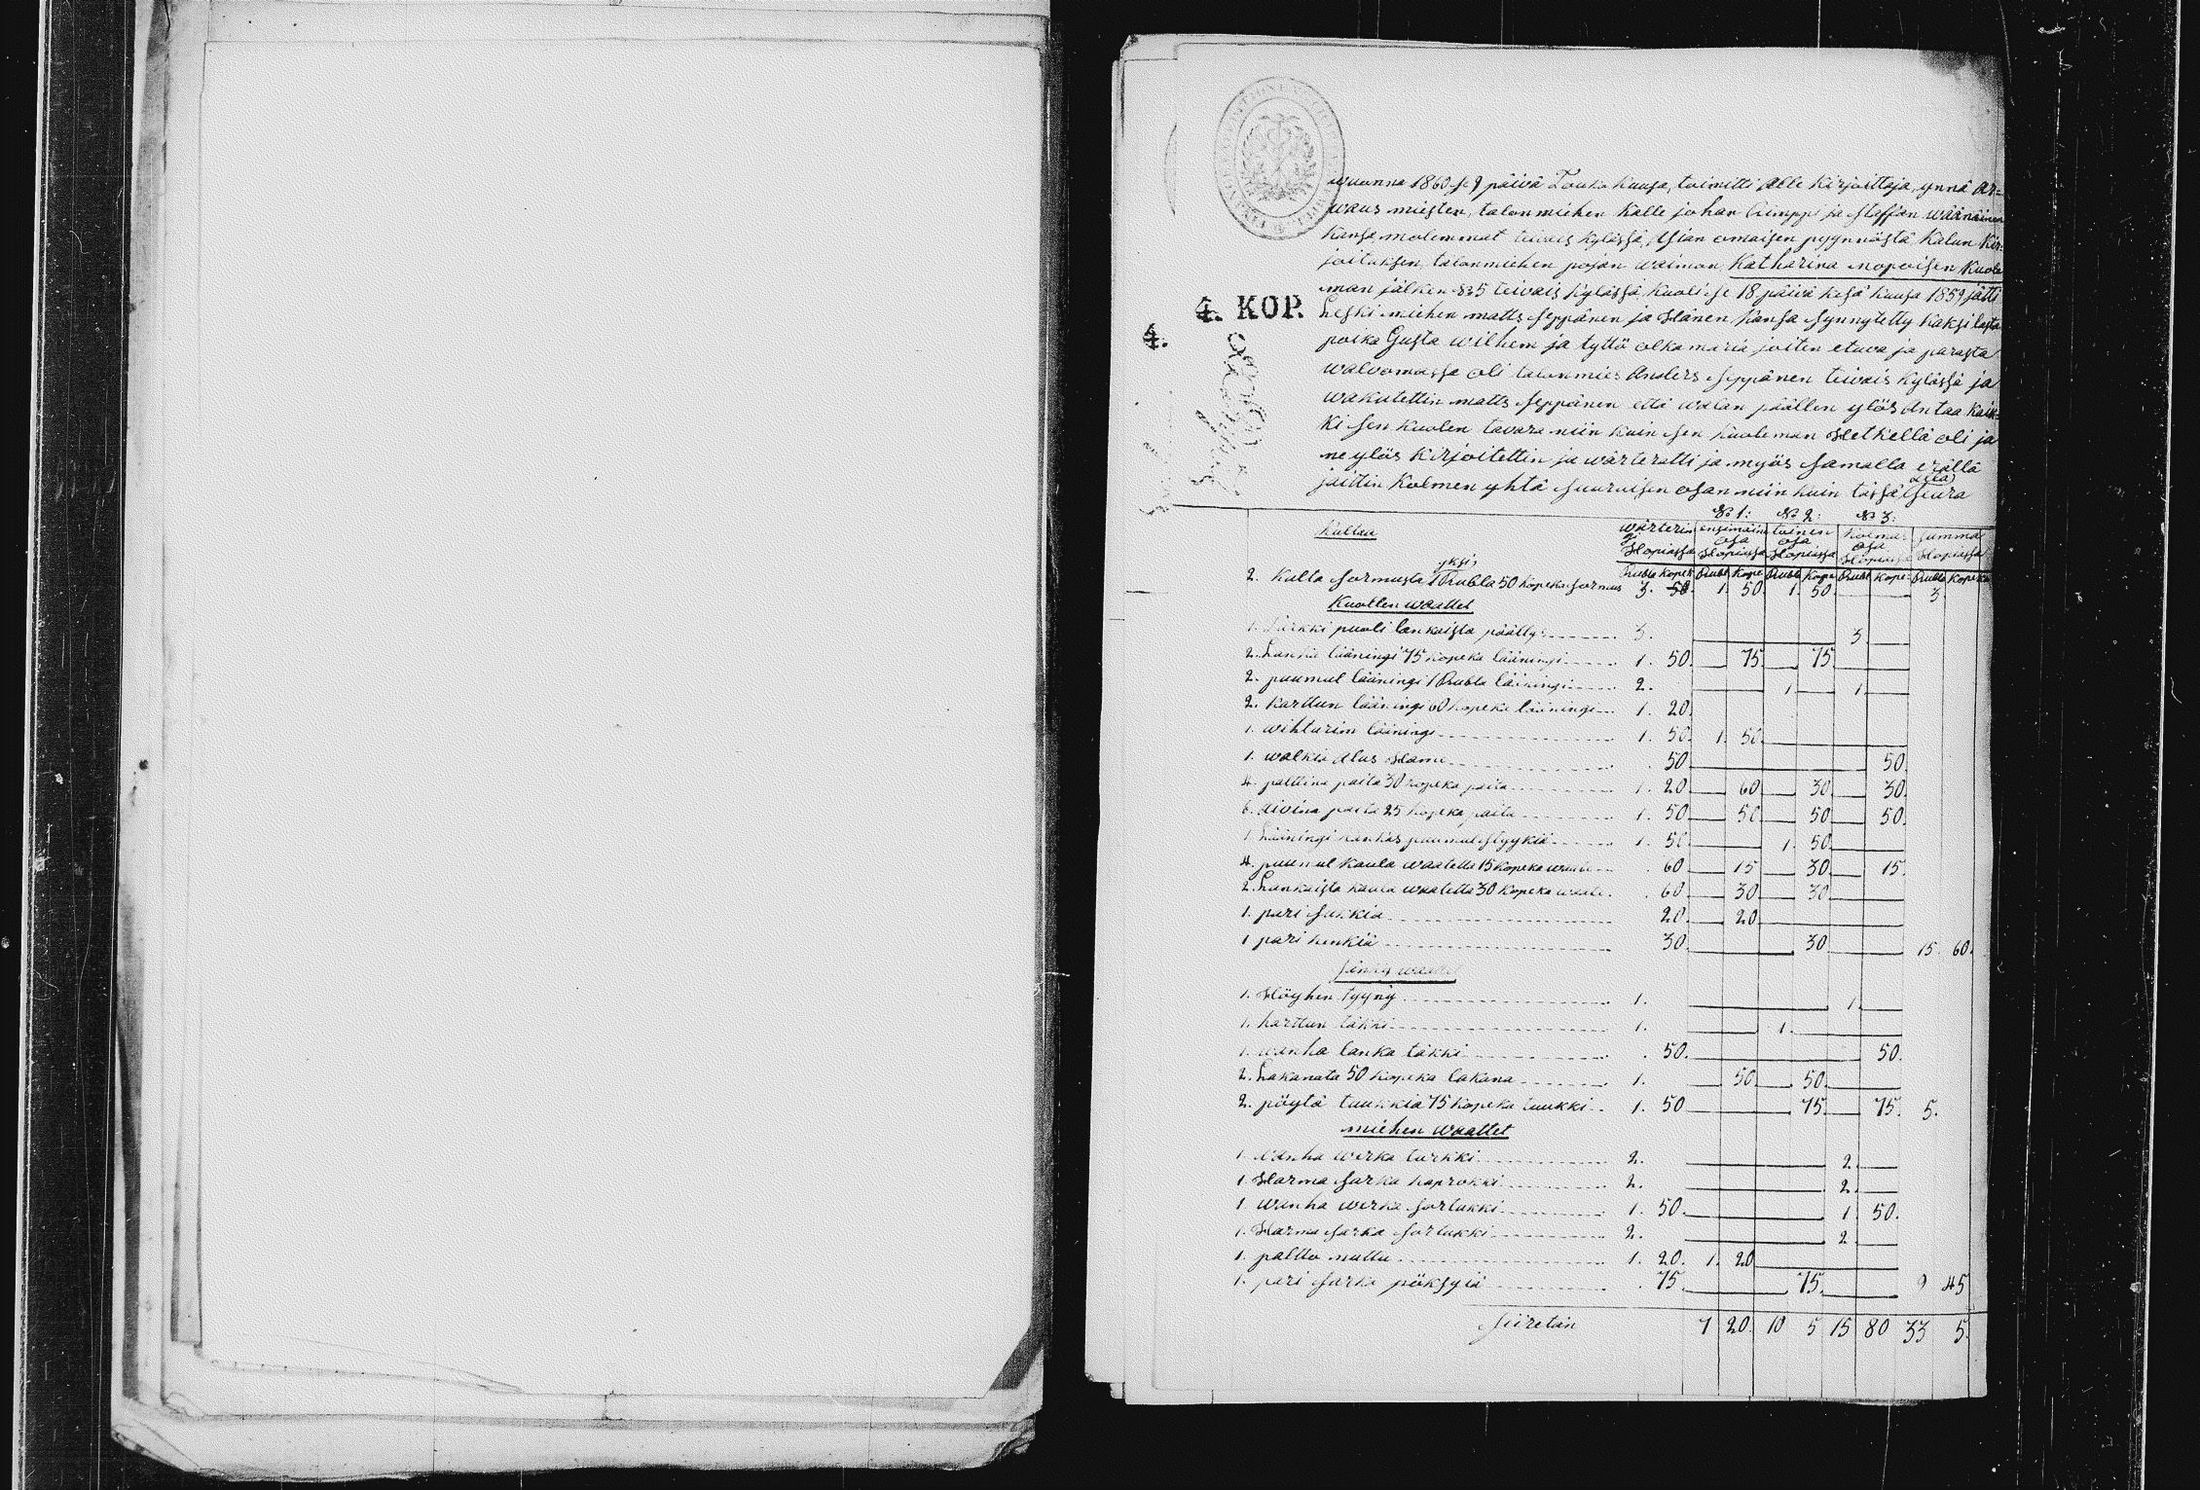 wuonna 1860 se 9 päivä Touko kuusa, toimitti Alle kirjoittaja, ynnä Ar=
waus miesten, talon miehen Kalle johan kimppi ja staffan wäänäinen
kansa molemmat teivais kylässä, Asian omaisen pyynnöstä Kalun Kir=
joituksen, talonmiehen pojan waimon Katharina nopoisen Kuole
man jälken teivais kylässä, kuoli se 18 päivä kesä kuusa 1859 jätti
4. KOP.
4.
Leski miehen matts seppänen ja Hänen kansa synnytetty kaksi lasta
poika Gusta wilhem ja tyttö olka maria joiten etuva ja parasta
walvomassa oli talonmies Anders seppänen teivais kylässä ja
wakutettin matts seppänen että walan päällen ylös Antaa kaik=
ki sen kuolen tavara niin kuin sen kuoleman Hetkellä oli ja
ne ylös kirjoitettin ja wärteratti ja myös samalla erällä
jaittin Kolmen yhtä suuruisen osan niin kuin tässä alla seura
No 1: No 2: No 3:
Kultaa wärterin Hopiassa ensimäin osa Hopiassa toinen osa Hopiassa kolmas osa Hopiassa summa Hopiassa
Rubla Kopek Rubl Kope Rubl Kope Rubl Kope Rubla Kopeka
2. Kulta sormusta yksi 1 Rubla 50 kopeka sormus 3. 50. 1. 50. 1. 50. 3
Kuollen waattet
1. Turkki puoli lankaista päälly 3. 3.
2. Lanka lääningi 75 kopeka lääningi 1. 50. 75 75
2. puumul lääningi 1 Rubla lääningi 2. 1 1
2. karttun lääningi 60 kopeka lääningi 1. 20.
1. wihturim lääningi 1. 50. 1. 50
1. walkia Alus Hame 50 50.
4. palttina paita 30 kopeka paita 1. 20 60 30 30.
6. Aivina paita 25 kopeka paita 1. 50 50 50 50.
1. Lääningi kankas puumul styykiä 1. 50 1. 50
4. puumul kaula waatetta 15 kopeka waate .60 15 30 15
2. Lankaista kaula waatetta 30 kopeka waate .60 30 30
1. pari sukkia 20. 20
1 pari kenkiä 30. 30 15. 60.
1. Höyhen tyyny 1. 1.
1. karttun täkki 1. 1.
1. wanha lanka täkki .50. 50.
2. Lakanata 50 kopeka lakana 1. 50 50
2. pöytä tuukkia 75 kopeka tuukki 1. 50 75 75. 5.
miehen waattet
1. wanha werka turkki 2. 2.
1. Harma sarka kaprokki 2. 2.
1. wanha werka sortukki 1. 50. 1. 50.
1. Harma sarka sortukki 2. 2
1. paltto nuttu 1. 20. 1. 20
1. pari sarka pöksyiä .75. 75. 9 45
siiretän 7 20. 10 5 15 80 33 5.